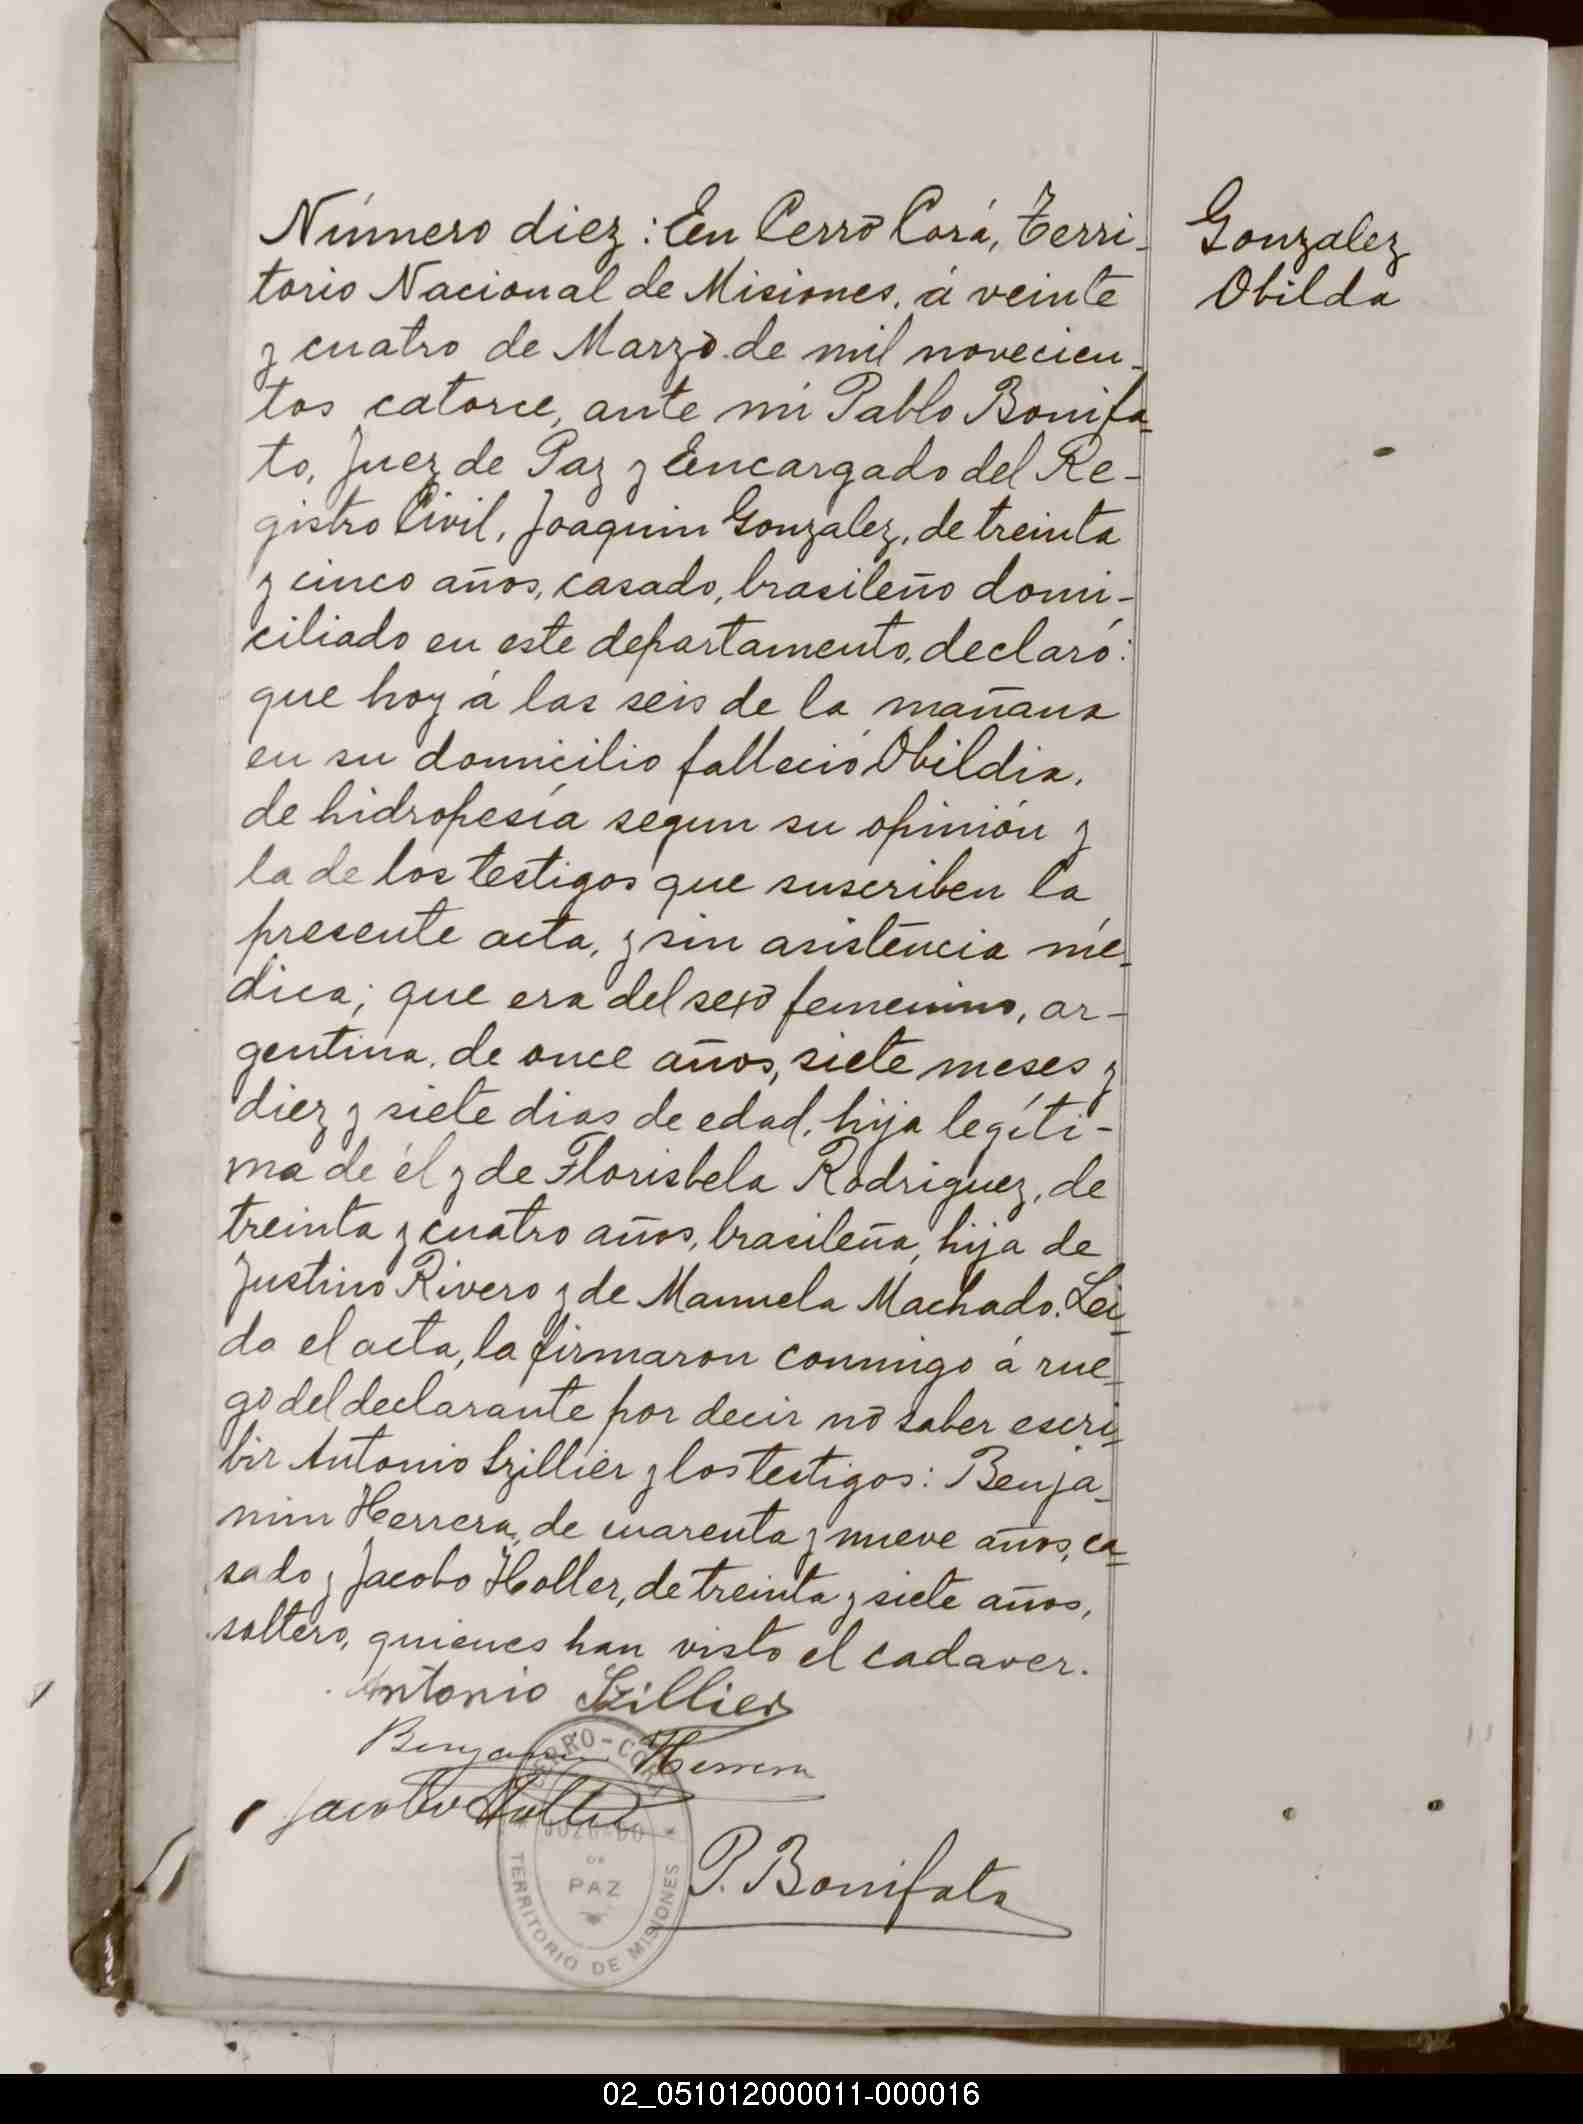 Número diez: En Cerro Corá, Terri-
torio Nacional de Misiones, á veinte
y cuatro de Marzo de mil novecien-
tos catorce, ante mi Pablo Bonifa-
to, Juez de Paz y Encargado del Re-
gistro Civil, Joaquin Gonzalez, de treinta
y cinco años, casado, brasileño domi-
ciliado en este departamento, declaró:
que hoy á las seis de la mañana
en su domicilio falleció Obildia,
de hidropesía segun su opinión y
la de los testigos que suscriben la
presente acta, y sin asistencia mé-
dica; que era del sexo femenino, ar-
gentina, de once años, siete meses y
diez y siete dias de edad, hija legíti-
ma de él y de Florisbela Rodriguez, de
treinta y cuatro años, brasileña, hija de
Justino Rivero y de Manuela Machado. Lei-
da el acta, la firmaron conmigo á rue-
go del declarante por decir no saber escri-
bir Antonio Szillier y los testigos: Benja-
min Herrera, de cuarenta y nueve años, ca-
sado y Jacobo Holler, de treinta y siete años,
soltero, quienes han visto el cadaver.
Antonio Szillier
Benjamin Herrera
Jacobo Holler
P. Bonifato
CERRO-CORÁ
JUZGADO
DE
PAZ
TERRITORIO DE MISIONES
Gonzalez
Obilda
02_051012000011-000016